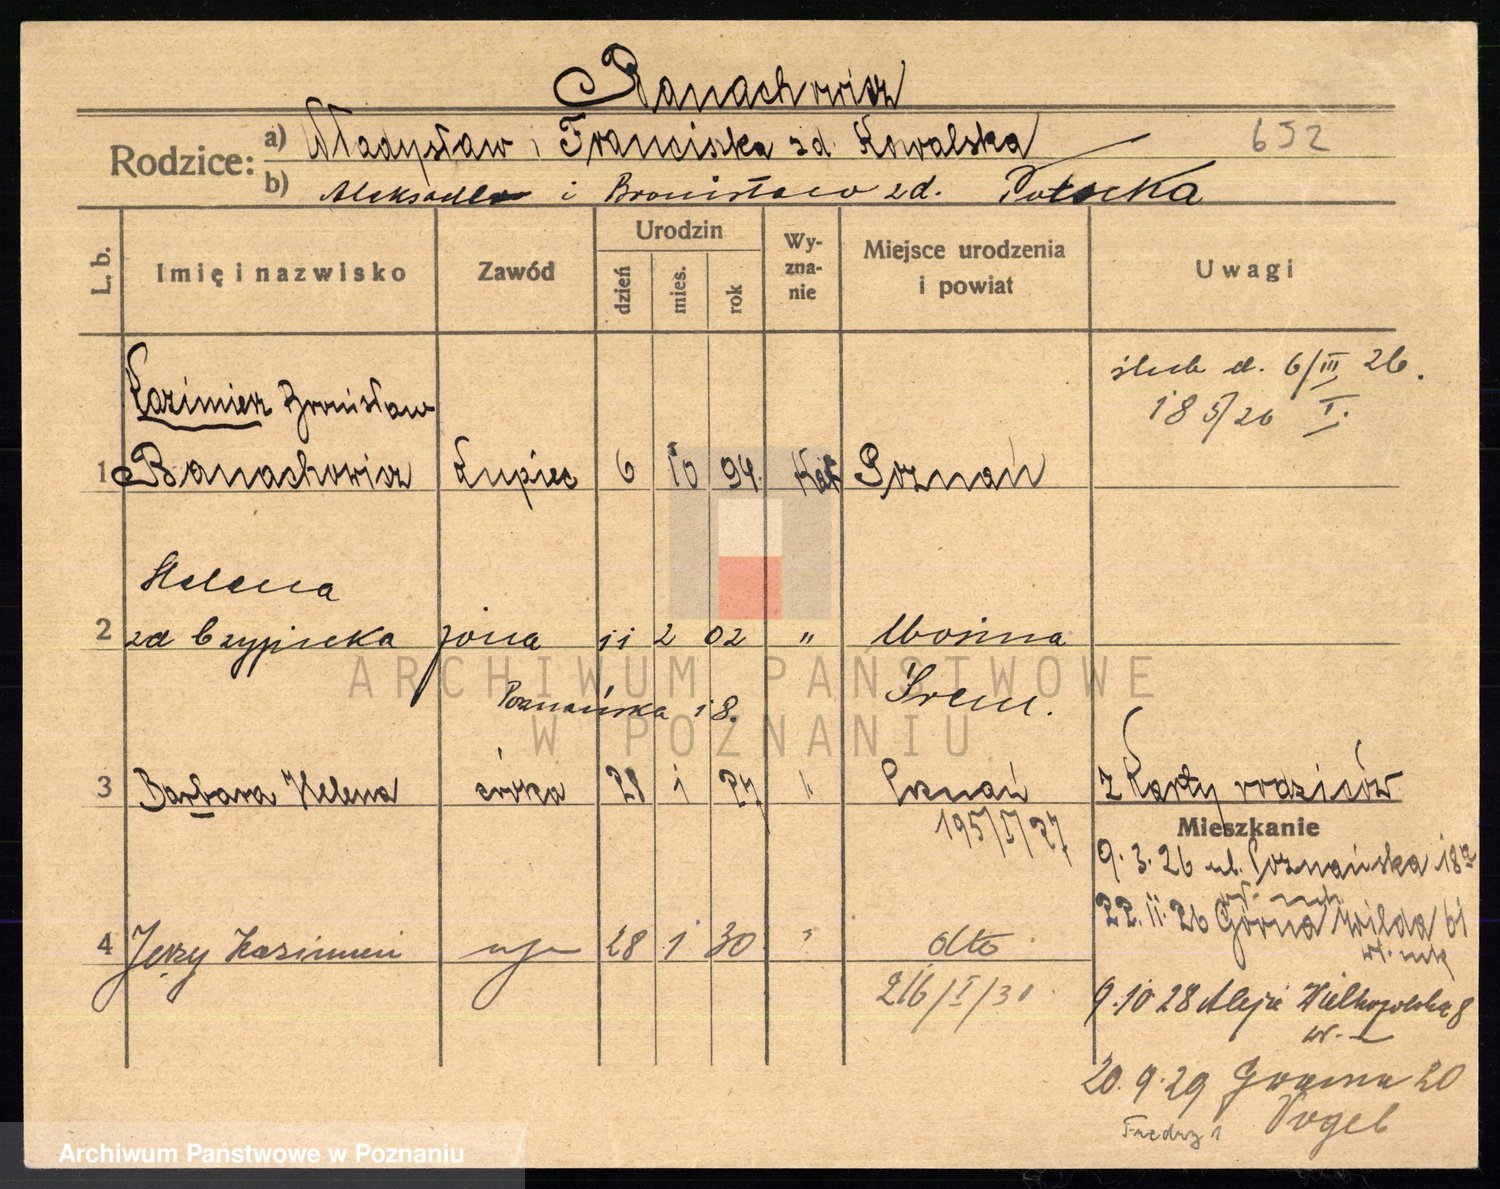 Banachowicz
Rodzice: a) Władysław i Franciszka zd. Kowalska
652
b) Aleksander i Bronisława zd. Potocka
L. b. Imię i nazwisko Zawód Urodzin dzień mies. rok Wyznanie Miejsce urodzenia i powiat Uwagi
ślub d. 6/III 26.
185/26 I.
Kazimierz Bronisław
1 Banachowicz kupiec 6 10 94. kat Poznań
Helena
2 zd Czypicka żona 11 2 02 " Mosina
Śrem.
Poznańska 18.
3 Barbara Helena córka 28 1 27 " Poznań z karty rodziców
195/I/27
Mieszkanie
9.3.26 ul. Poznańska 18a
22.11.26 Górna Wilda 61
4 Jerzy Kazimierz syn 28 1 30 " dto
216/I/30
9.10.28 Aleje Wielkopolskie 8
20.9.29 20
Vogel
Fredry 1
ARCHIWUM PAŃSTWOWE
W POZNANIU
Archiwum Państwowe w Poznaniu